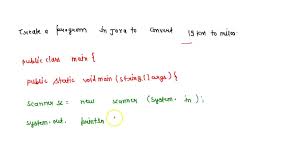 Create a program in java to convert 19 km to miles
public class main {
public static void main (string [] args) {
scanner sc = new scanner (system. in );
system.out. println